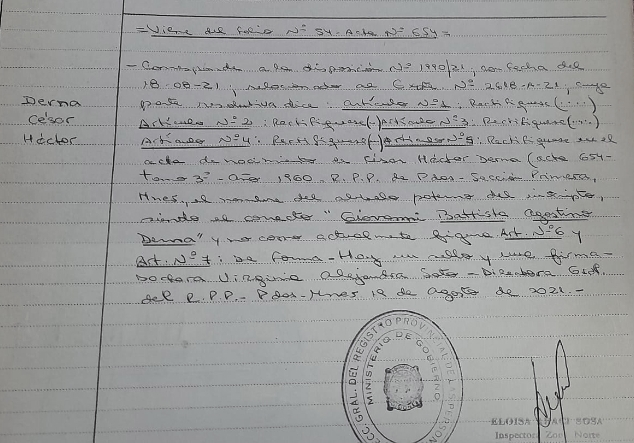 = Viene del folio Nº 54. Acta Nº 654 =
- Corresponde a la disposición Nº 1990/21, con fecha del
18-08-21, relacionado al Expte Nº 2618-A-21, cuya
parte resolutiva dice: artículo Nº 1: Rectifíquese (...)
Derna
César
Héctor
Artículo Nº 2: Rectifíquese (..) Artículo Nº 3: Rectifíquese (...)
Artículo Nº 4: Rectifíquese (..) Artículo Nº 5: Rectifíquese en el
acta de nacimiento de César Héctor Derna (acta 654-
tomo 3º - Año 1960 - R.P.P. de Pdas - Sección Primera,
Mnes, el nombre del abuelo paterno del inscripto,
siendo el correcto "Giovanni Battista Agostino
Derna" y no como actualmente figura Art. Nº 6 y
Art. Nº 7: De forma - Hay un sello y una firma -
Doctora Virginia Alejandra Soto - Directora Gral.
del R.P.P. - Pdas - Mnes 19 de Agosto de 2021 -
GRAL. DEL REGISTRO PROVINCIAL DE
MINISTERIO DE GOBIERNO
ELOISA SOSA
Inspectora Zona Norte